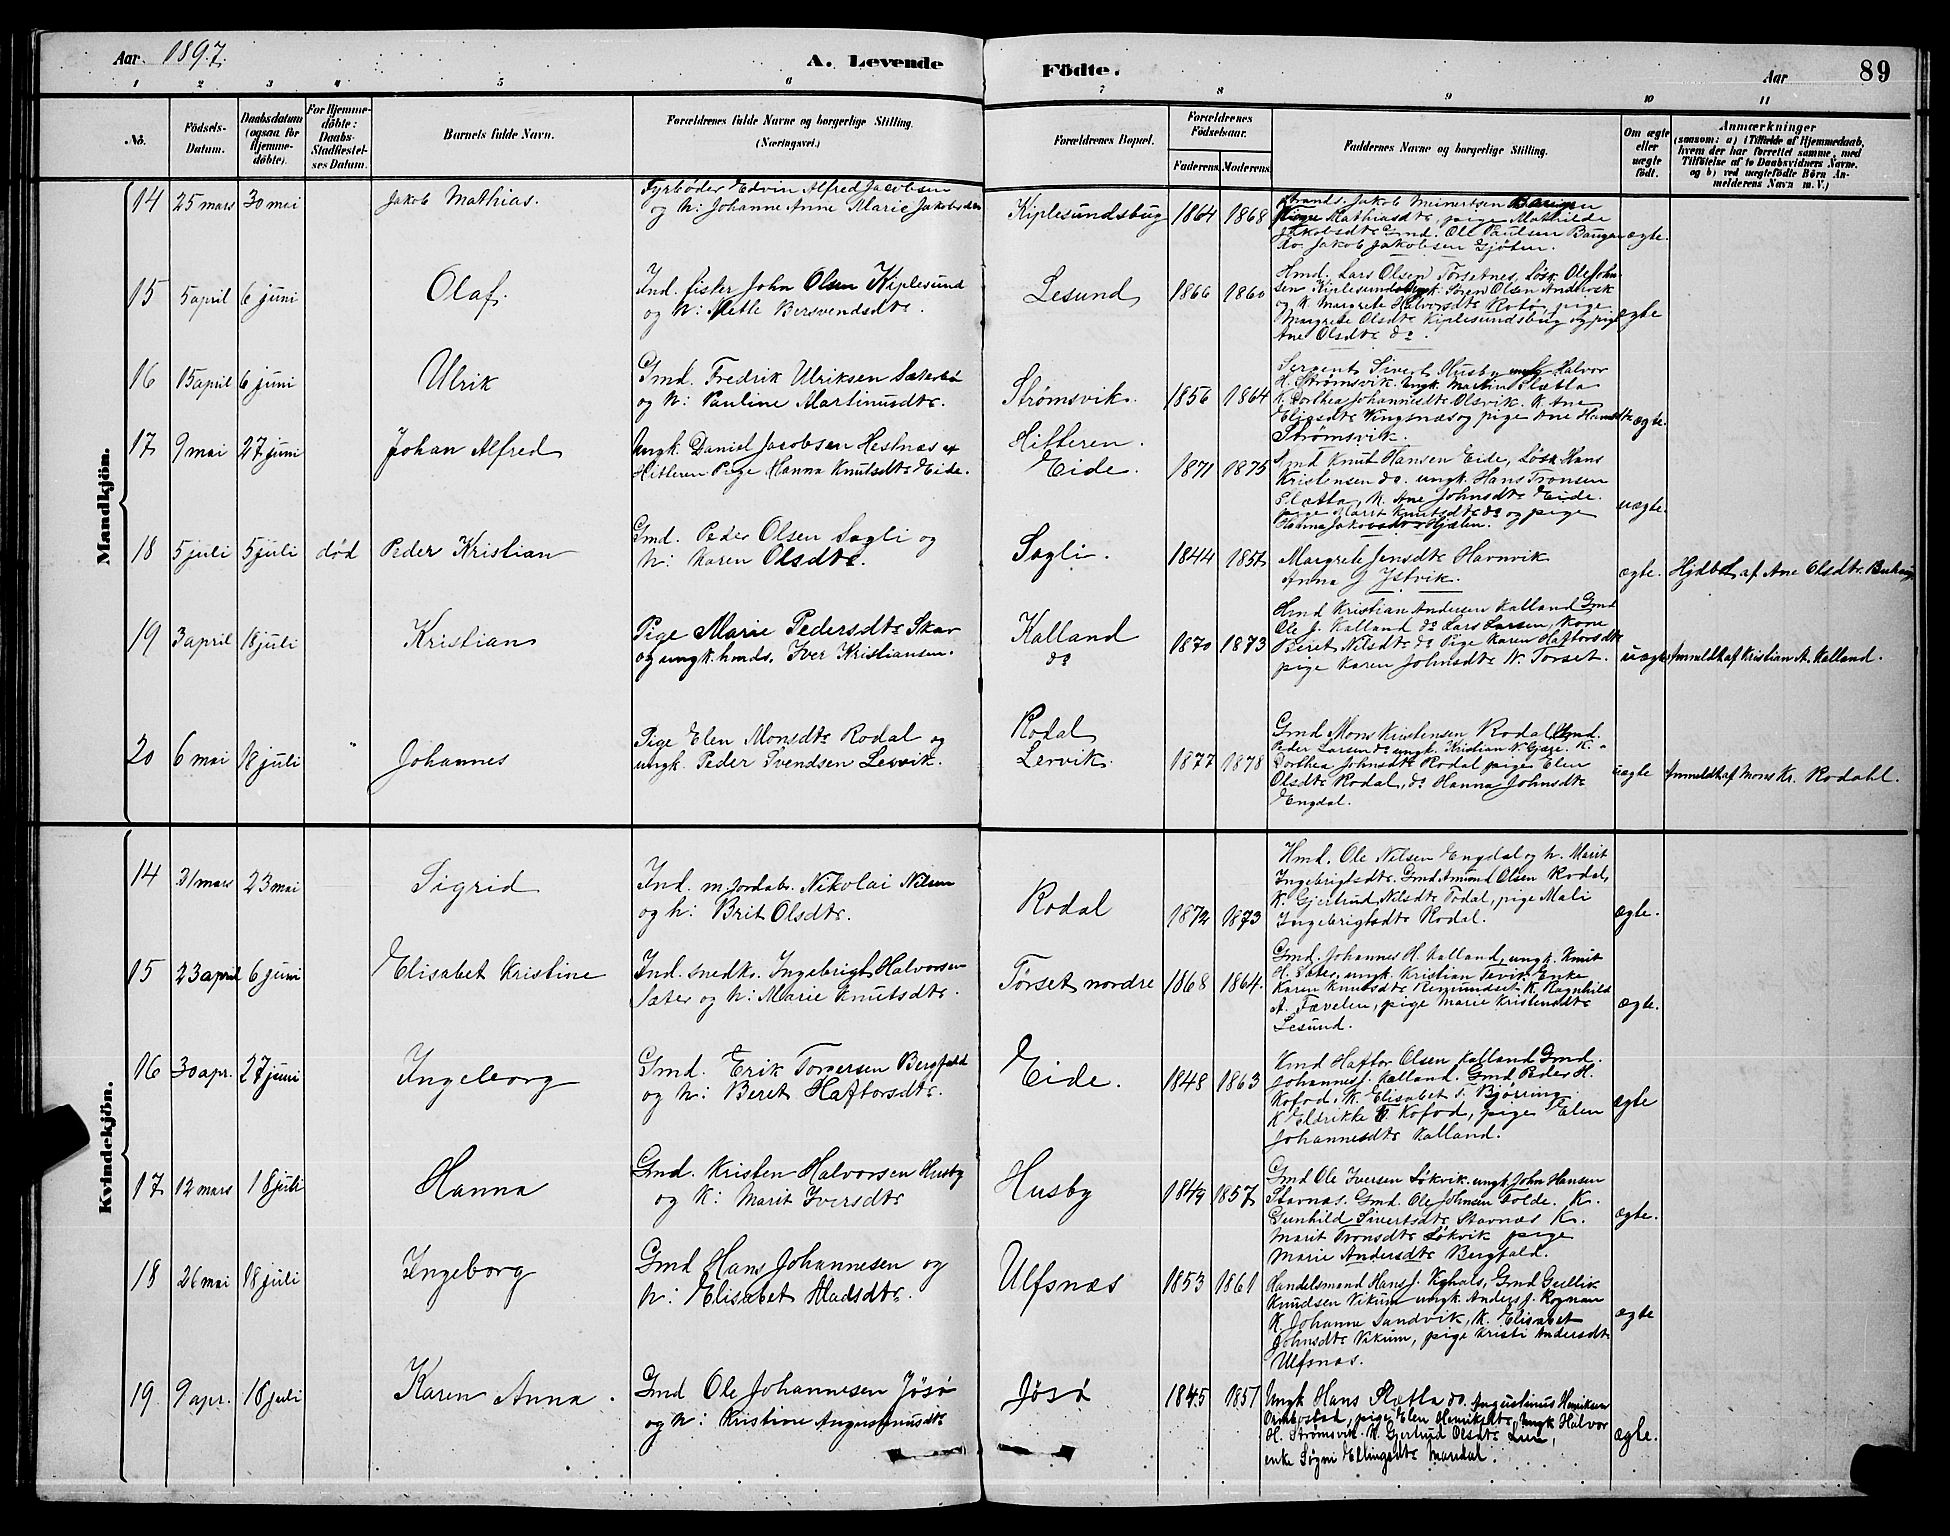 Aar 1897.
A. Levende Födte.
Aar 89
1 2 3 4 5 6 7 8 9 10 11
No.
Födsels-
Datum.
Daabsdatum
(ogsaa for
Hjemme-
döbte).
For Hjemme-
döbte:
Daabs-
Stadfæstel-
ses Datum.
Barnets fulde Navn.
Forældrenes fulde Navne og borgerlige Stilling.
(Næringsvei.)
Forældrenes Bopæl.
Forældrenes
Födselsaar.
Faderens. Moderens.
Faddernes Navne og borgerlige Stilling.
Om ægte
eller
uægte
født.
Anmærkninger
(saasom: a) i Tilfælde af Hjemmedaab,
hvem der har forrettet samme, med
Tilföielse af to Daabsvidners Navne,
og b) ved uægtefödte Börn An-
melderens Navn m. V.)
Mandkjön.
14 25 mars 30 mai
Jakob Mathias.
Fyrbøder Edvin Alfred Jacobsen
og h: Johanne Anne Marie Jakobsdtr
Kiplesundsbug 1864 1868
Strands. Jakob Meinertsen
Mathiasdtr, pige Mathilde
Jakobsdtr Gmd. Ole Paulsen Baugen
do. Jakob Jakobsen Gjöten.
ægte.
15 5 april 6 juni
Olaf.
Ind. fisker John Olsen Kiplesund
og h: Mette Bersvendsdtr.
Lesund 1866 1860
Hmd. Lars Olsen Torsetnes, Løsk Ole John-
sen Kiplesundsbug. Søren Olsen Andersk
og K. Margrete Halvorsdtr Rotø, pige
Margrete Olsdtr Kiplesundsbug og pige
Ane Olsdtr do.
ægte
16 15 april 6 juni
Ulrik
Gmd. Fredrik Ulriksen Sæterbø
og h: Pauline Martinusdtr.
Strømsvik. 1856 1864
Sergent Sivert Husby ungk Halvor
H. Strømsvik. Ungk. Martin Slætta
K. Dorthea Johannesdtr Olsvik. K. Ane
Eliasdtr Vingsnæs og pige Ane Hansdtr
Strømsvik.
ægte.
17 9 mai 27 juni
Johan Alfred
Ungk. Daniel Jacobsen Hestnæs af
Hitteren Pige Hanna Knutsdtr Eide.
Hitteren.
Eide. 1871 1875
Gmd Knut Hansen Eide, Løsk Hans
Kristensen do. ungk. Hans Tronsen
Slætta, K. Ane Johnsdtr Eide.
pige Marit Knutsdtr do og pige
Hanna Jakobsdtr Hjælen.
uægte.
18 5 juli 5 juli død
Peder Kristian
Gmd. Peder Olsen Sagli og
h: Karen Olsdtr.
Sagli. 1844 1851
Margrete Jensdtr Havnvik
Anna J Ystvik.
ægte. Hjdbt af Ane Olsdtr.
19 3 april 18 juli
Kristian
Pige Marie Pedersdtr Skar
og ungk. hmds. Iver Kristiansen.
Kalland
do 1870 1873
Hmd Kristian Andersen Kalland Gmd
Ole J. Kalland do Lars Larsen, Kone
Beret Nilsdtr do Pige Karen Haftorsdtr
pige Karen Johnsdtr N. Torset.
uægte Anmeldt af Kristian A. Kalland.
20 6 mai 18 juli
Johannes
Pige Elen Monsdtr Rodal og
ungk. Peder Svendsen Lervik.
Rodal
Lervik. 1877 1878
Gmd Mons Kristensen Rodal Gmd.
Peder Larsen do ungk. Kristian N. Gjøge. K.
Dorthea Johnsdtr Rodal pige Elen
Olsdtr Rodal, do Hanna Johnsdtr
Engdal.
uægte Anmeldt af Mons Kr. Rodahl.
Kvindekjön.
14 31 mars 23 mai
Sigrid
Ind. m jordabr. Nikolai Nilsen
og h: Brit Olsdtr.
Rodal 1872 1873
Hmd. Ole Nilsen Engdal og h. Marit
Ingebrigtsdtr. Gmd Amund Olsen Rodal,
K. Gjertrud Nilsdtr Todal, pige Mali
Ingebrigtsdtr Rodal.
ægte.
15 23 april 6 juni
Elisabet Kristine
Ind. snedkr. Ingebrigt Halvorsen
Sæter og h: Marie Knutsdtr.
Tørset nordre 1868 1864.
Gmd. Johannes H. Kalland, ungk. Knut
H. Sæter, ungk. Kristian Tevik Enke
Karen Knutsdtr Remundset K. Ragnhild
A. Fævelen, pige Marie Kristensdtr
Lesund.
ægte.
16 30 apr. 27 juni
Ingeborg
Gmd. Erik Torgersen Bergfald
og h: Beret Haftorsdtr.
Eide. 1848 1863
Kmd Haftor Olsen Kalland Gmd.
Johannes J. Kalland. Gmd Peder H.
Kofod. K. Elisabet S. Bjøring
K Eldrikke Kofod, pige Elen
Johannesdtr Kalland.
ægte
17 12 mars 18 juli
Hanna
Gmd. Kristen Halvorsen Husby
og K: Marit Iversdtr
Husby 1849 1857
Gmd Ole Iversen Løkvik. ungk John Hansen
Stavnæs. Gmd. Ole Johnsen Golde. K.
Gunhild Sivertsdtr Stavnæs K.
Marit Tronsdtr Løkvik pige
Marie Andersdtr Bergfald.
ægte.
18 26 mai 18 juli
Ingeborg
Gmd Hans Johannesen og
h: Elisabet Madsdtr.
Ulfsnæs 1853 1861
Handelsmand Hans J. Kghals, Gmd Gullik
Knudsen Vikum ungk. Anders J. Rognan
K. Johanne Sandvik, K. Elisabet
Johnsdtr Vikum, pige Kristi Andersdtr
Ulfsnæs.
ægte
19 9 apr. 18 juli
Karen Anna.
Gmd Ole Johannesen Jøsø
og h: Kristine Augustinusdtr
Jøsø 1845 1851
Ungk Hans Slætta do. Augustinus Henriksen
Ormbostad, pige Elen Henriksdtr, Ungk Halvor
H. Strømsvik. K. Gjertrud Olsdtr Lien,
enke Søgni Ellingsdtr Mardal.
ægte.